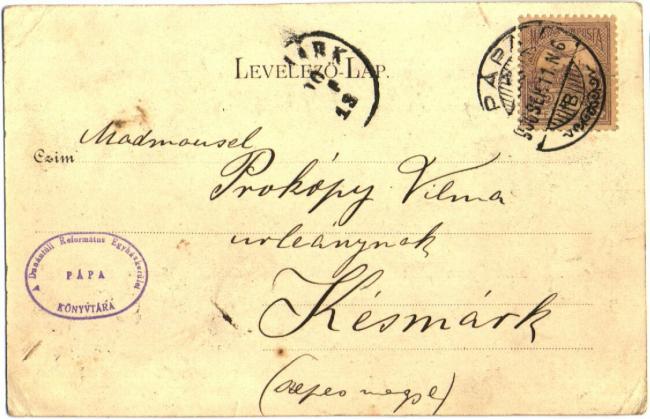 LEVELEZŐ-LAP.
PÁPA
Czim
Madmousel
Prokópy Vilma
urleánynak
Késmárk
(szepes megye)
A Dunántúli Református Egyházkerület
PÁPA
KÖNYVTÁRA